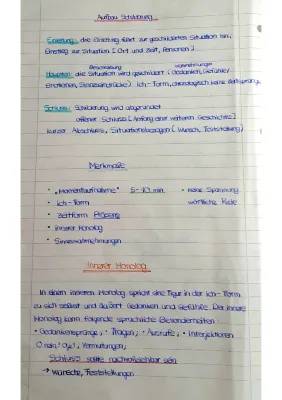 Aufbau Schilderung
Einleitung: die Einleitung führt zur geschilderten Situation hin,
Einstieg zur Situation (Ort und Zeit, Personen)
Beschreibung Wahrnehmungen
Hauptteil: die Situation wird geschildert (Gedanken, Gefühle/
Emotionen, Sinneseindrücke) Ich-Form, chronologisch keine Zeitsprünge
Schluss: Schilderung wird abgerundet
offener Schluss (Anfang einer weiteren Geschichte)
kurzer Abschluss, Situationsbezogen (Wunsch, Feststellung)
Merkmale
• "Momentaufnahme" 5-10 min. • keine Spannung
• Ich-Form wörtliche Rede
• Zeitform Präsens
• innerer Monolog
• Sinneswahrnehmungen
Innerer Monolog
In einem inneren Monolog spricht eine Figur in der Ich-Form
zu sich selbst und äußert Gedanken und Gefühle. Der innere
Monolog kann folgende sprachliche Besonderheiten
• Gedankensprünge, • Fragen, • Ausrufe, • Interjektionen
Vermutungen,
Schluss sollte nachvollziehbar sein
→ Wünsche, Feststellungen